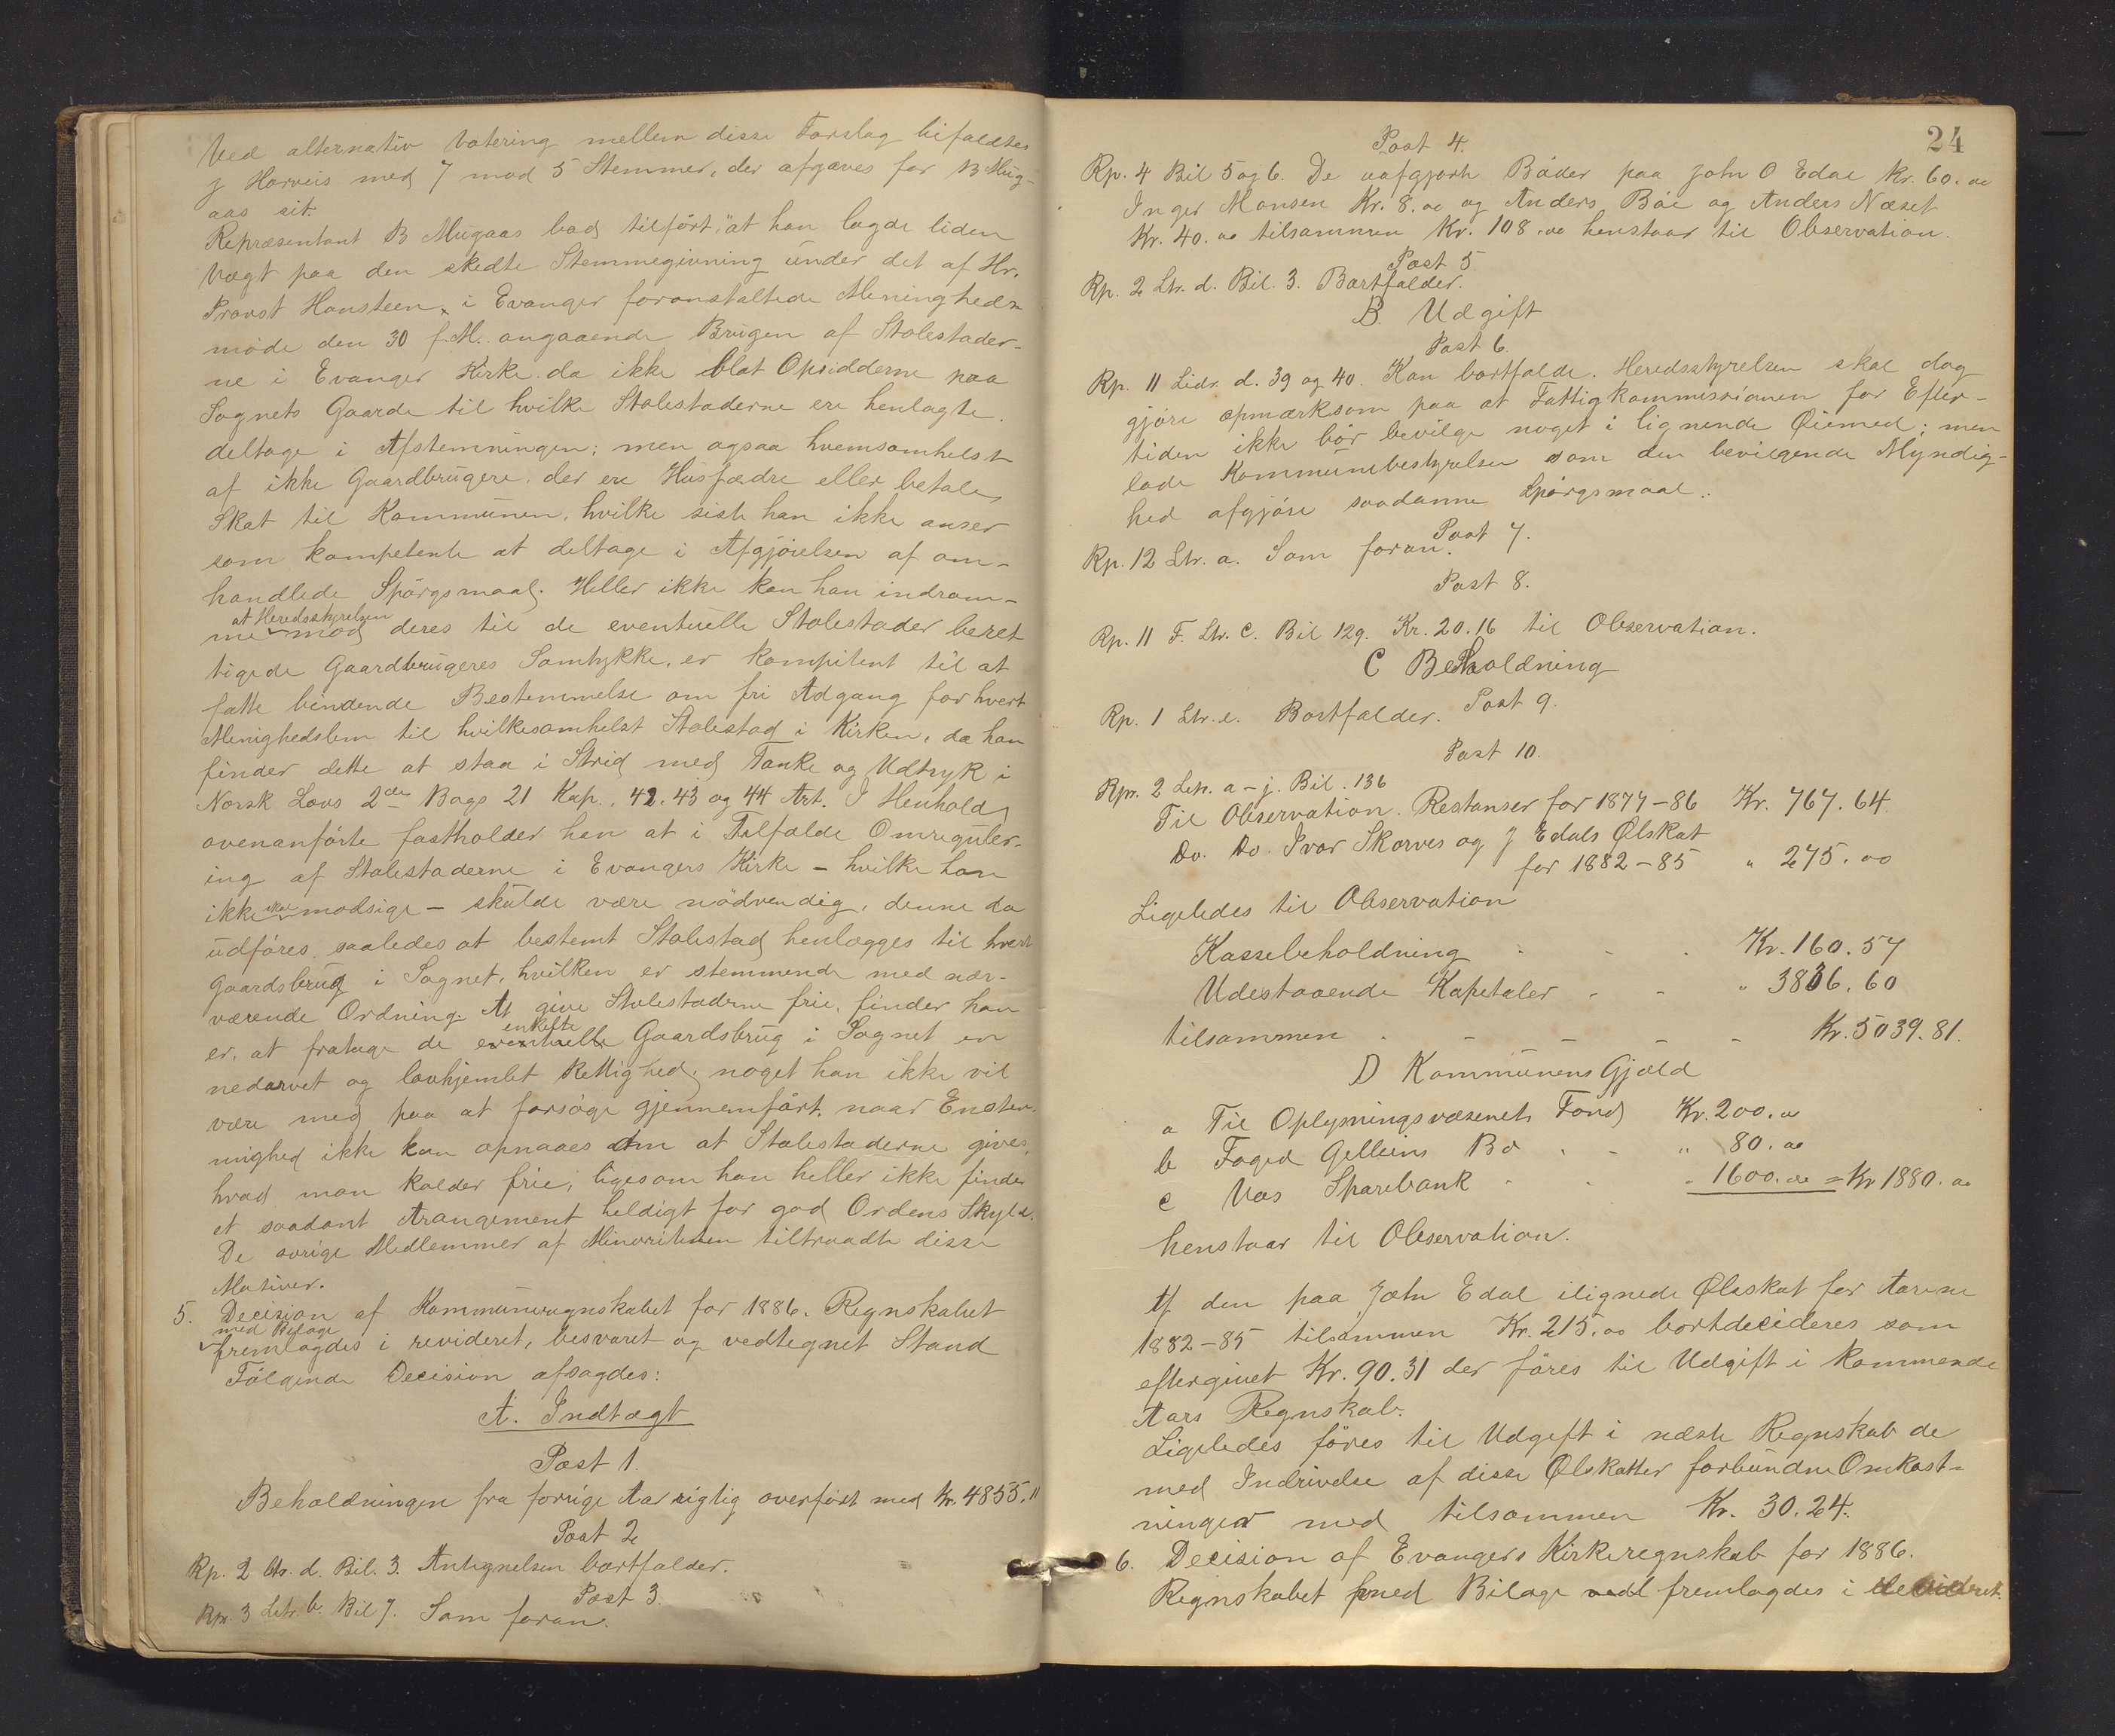 Ved alternativ Votering mellem disse Forslag bifaldtes
J Horveis med 7 mod 5 Stemmer, der afgaves for B Mug-
aas sit.
Repræsentant B Mugaas bad tilført, "at han lagde liden
Vægt paa den skedte Stemmegivning under det af Hr.
Provst Hansteen i Evanger foranstaltede Menigheds-
møde den 30 f.M. angaaende Brugen af Stolestader-
ne i Evanger Kirke da ikke blot Opsidderne paa
Sognets Gaarde til hvilke Stolestaderne ere henlagte.
deltoge i Afstemningen; men ogsaa hvemsomhelst
af ikke Gaardbrugere, der ere Husfædre eller betale
Skat til Kommunen, hvilke sidste han ikke anser
som kompetente at deltage i Afgjørelsen af om-
handlede Spørgsmaal. Heller ikke kan han indrøm-
at Heredsstyrelsen
me mod deres til de eventuelle Stolestader beret
tigede Gaardbrugeres Samtykke, er kompitent til at
fatte bindende Bestemmelse om fri Adgang for hvert
Menighedslem til hvilkesomhelst Stolestad i Kirken, da han
finder dette at staa i Strid med Tanke og Udtryk i
Norsk Lovs 2den Bogs 21 Kap., 42, 43 og 44 Art. I Henhold
ovenanførte fastholder han at i Tilfælde Omreguler-
ing af Stolestaderne i Evangers Kirke - hvilke han
ikke skal modsige - skulde være nødvendig, denne da
udføres saaledes at bestemt Stolestad henlægges til hvert
Gaardsbrug i Sognet, hvilken er stemmende med nær-
værende Ordning. At give Stolestaderne frie, finder han
enkelte
er, at fratage de eventuelle Gaardsbrug i Sognet en
nedarvet og lovhjemlet Rettighed; noget han ikke vil
være med paa at forsøge gjennemført, naar Enstem-
mighed ikke kan opnaaes om at Stolestaderne gives,
hvad man kalder frie, ligesom han heller ikke finder
et saadant Arangement heldigt for god Ordens Skyld.
De øvrige Medlemmer af Minoriteten tiltraadte disse
Motiver.
5. Decision af Kommuneregnskabet for 1886. Regnskabet
med Bilage
fremlagdes i revideret, besvaret og vedtegnet Stand
Følgende Decision afsagdes:
A. Indtægt
Post 1.
Beholdningen fra forrige Aar rigtig overført med Kr. 4855.11
Post 2
Rp. 2 Ltr. d. Bil. 3. Antegnelsen bortfalder.
Post 3.
Rp. 3 Ltr. b. Bil 7. Som foran.
24
Post 4.
Rp. 4 Bil 5 og 6. De uafgjorte Bøder paa John O Edal Kr. 60.00
Inger Monsen Kr. 8.00 og Anders Bøe og Anders Næset
Kr. 40.00 tilsammen Kr. 108.00 henstaar til Observation.
Post 5
Rp. 2 Ltr. d. Bil. 3. Bortfalder.
B. Udgift
Post 6.
Rp. 11 Lidr. d. 39 og 40. Kan bortfalde. Heredsstyrelsen skal dog
gjøre opmærksom paa at Fattigkommissionen for Efter-
tiden ikke bør bevilge noget i lignende Øiemed; men
lade Kommunebestyrelsen som den bevilgende Myndig-
hed afgjøre saadanne Spørgsmaal.
Post 7.
Rp. 12 Ltr. a. Som foran.
Post 8.
Rp. 11 F. Ltr. C. Bil 129. Kr. 20.16 til Observation.
C Beholdning
Post 9.
Rp. 1 Ltr. e. Bortfalder.
Post 10.
Rpr. 2 Ltr. a - j. Bil. 136
Til Observation. Restanser for 1877-86 Kr. 767.64.
Do. Do. Ivar Skorves og J Edals Ølskat
for 1882-85 " 275.00
Ligeledes til Observation
Kassebeholdning - - - Kr. 160.57
Udestaaende Kapetaler - - " 3836.60
tilsammen - - - - - Kr. 5039.81.
D Kommunens Gjæld
a Til Oplysningsvæsenets Fond Kr. 200.00
b Foged Gelleins Bo - - " 80.00
c Vos Sparebank - - " 1600.00 = Kr 1880.00
henstaar til Observation.
Af den paa John Edal ilignede Ølskat for Aarene
1882-85 tilsammen Kr. 215.00 bortdecideres som
eftergivet Kr. 90.31 der føres til Udgift i kommende
Aars Regnskab.
Ligeledes føres til Udgift i næste Regnskab de
med Indrivelse af disse Ølskatter forbundne Omkost-
ninger med tilsammen Kr. 30.24.
6. Decision af Evangers Kirkeregnskab for 1886.
Regnskabet med Bilage fremlagdes i